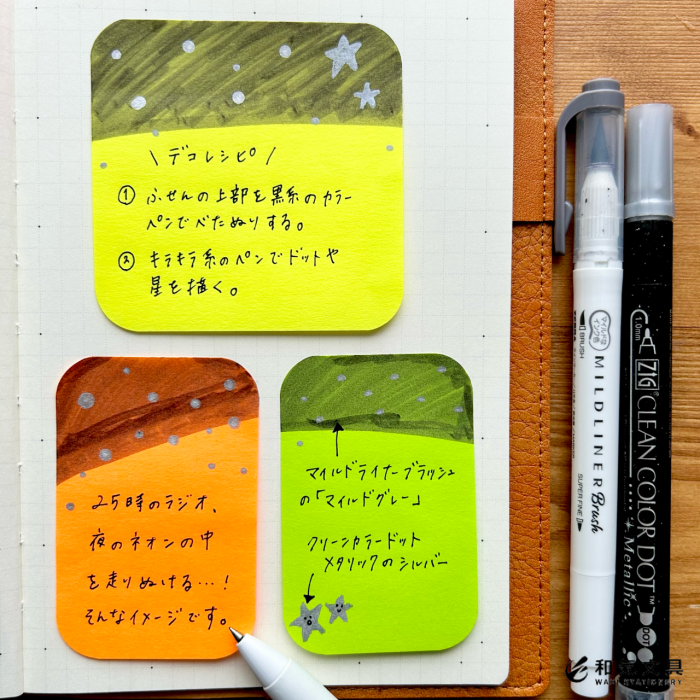 \ デコレシピ /
① ふせんの上部を黒系のカラー
ペンでべたぬりする。
② キラキラ系のペンでドットや
星を描く。
25時のラジオ、
夜のネオンの中
を走りぬける…!
そんなイメージです。
マイルドライナーブラッシュ
の「マイルドグレー」
クリーンカラードット
メタリックのシルバー
マイルドな
インク色
BRUSH
MILDLINER Brush
SUPER FINE
1.0mm
ZIG
CLEAN COLOR DOT
Metallic
DOT